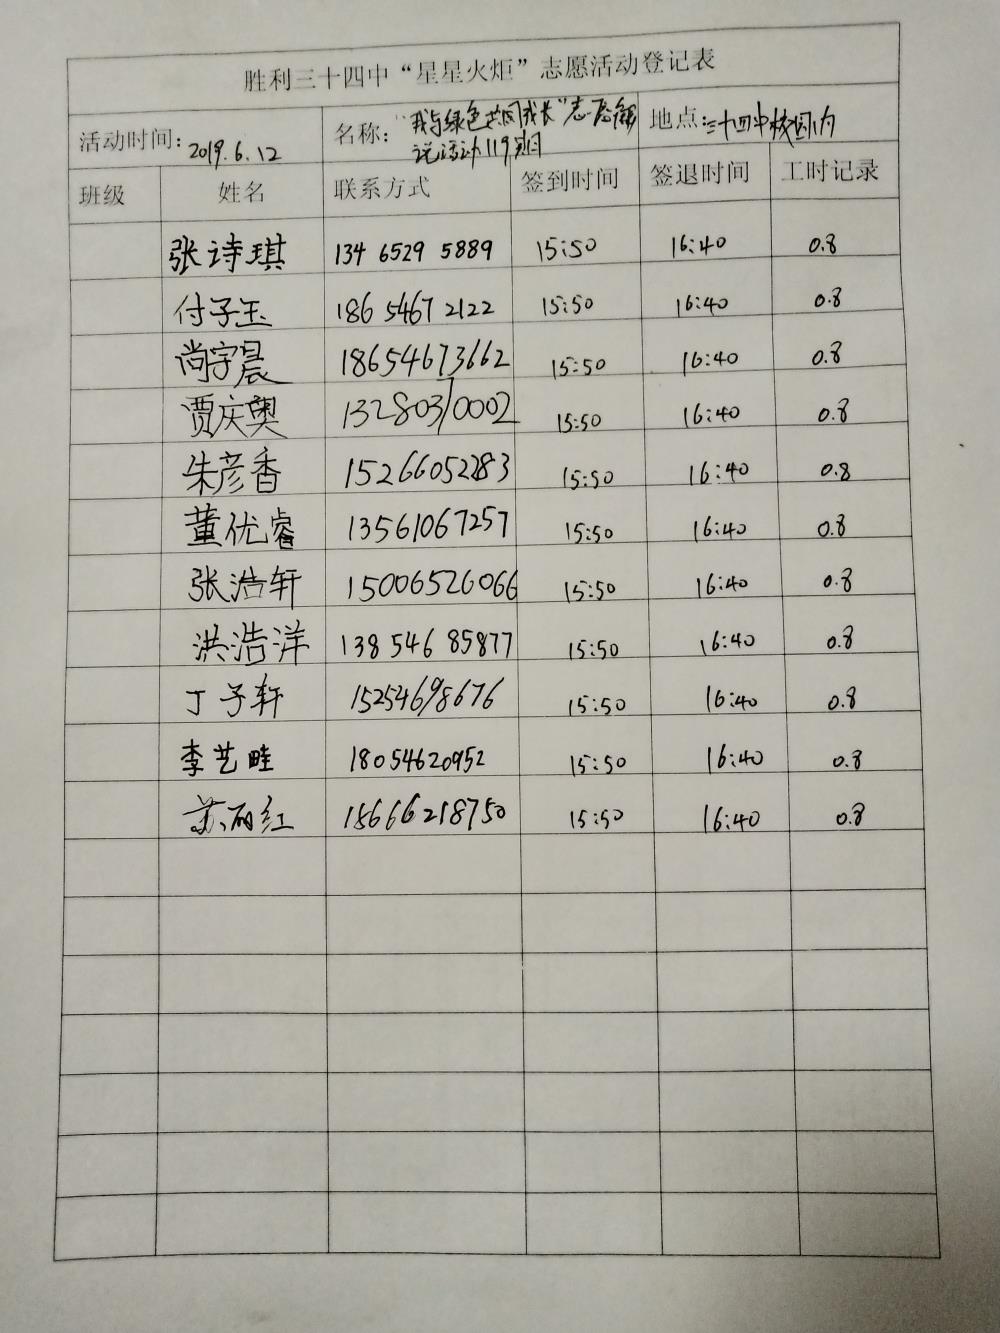 胜利三十四中“星星火炬”志愿活动登记表
活动时间：2019.6.12 名称：“我与绿色共同成长”志愿解说活动119期 地点：三十四中校园内
班级 姓名 联系方式 签到时间 签退时间 工时记录
张诗琪 134 6529 5889 15:50 16:40 0.8
付子玉 186 5467 2122 15:50 16:40 0.8
尚宇晨 18654673662 15:50 16:40 0.8
贾庆奥 13280370002 15:50 16:40 0.8
朱彦香 15266052283 15:50 16:40 0.8
董优睿 13561067257 15:50 16:40 0.8
张浩轩 15006526066 15:50 16:40 0.8
洪浩洋 138 546 85877 15:50 16:40 0.8
丁子轩 15254698676 15:50 16:40 0.8
李艺畦 18054620952 15:50 16:40 0.8
苏丽红 15666218750 15:50 16:40 0.8